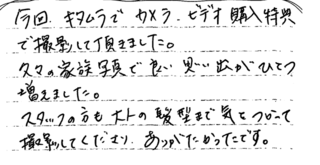 今回、キタムラで カメラ、ビデオ 購入特典
で撮影して頂きました。
久々の家族写真で良い思い出がひとつ
増えました。
スタッフの方も大人の髪型まで気をつかって
撮影してくださり、ありがたかったです。